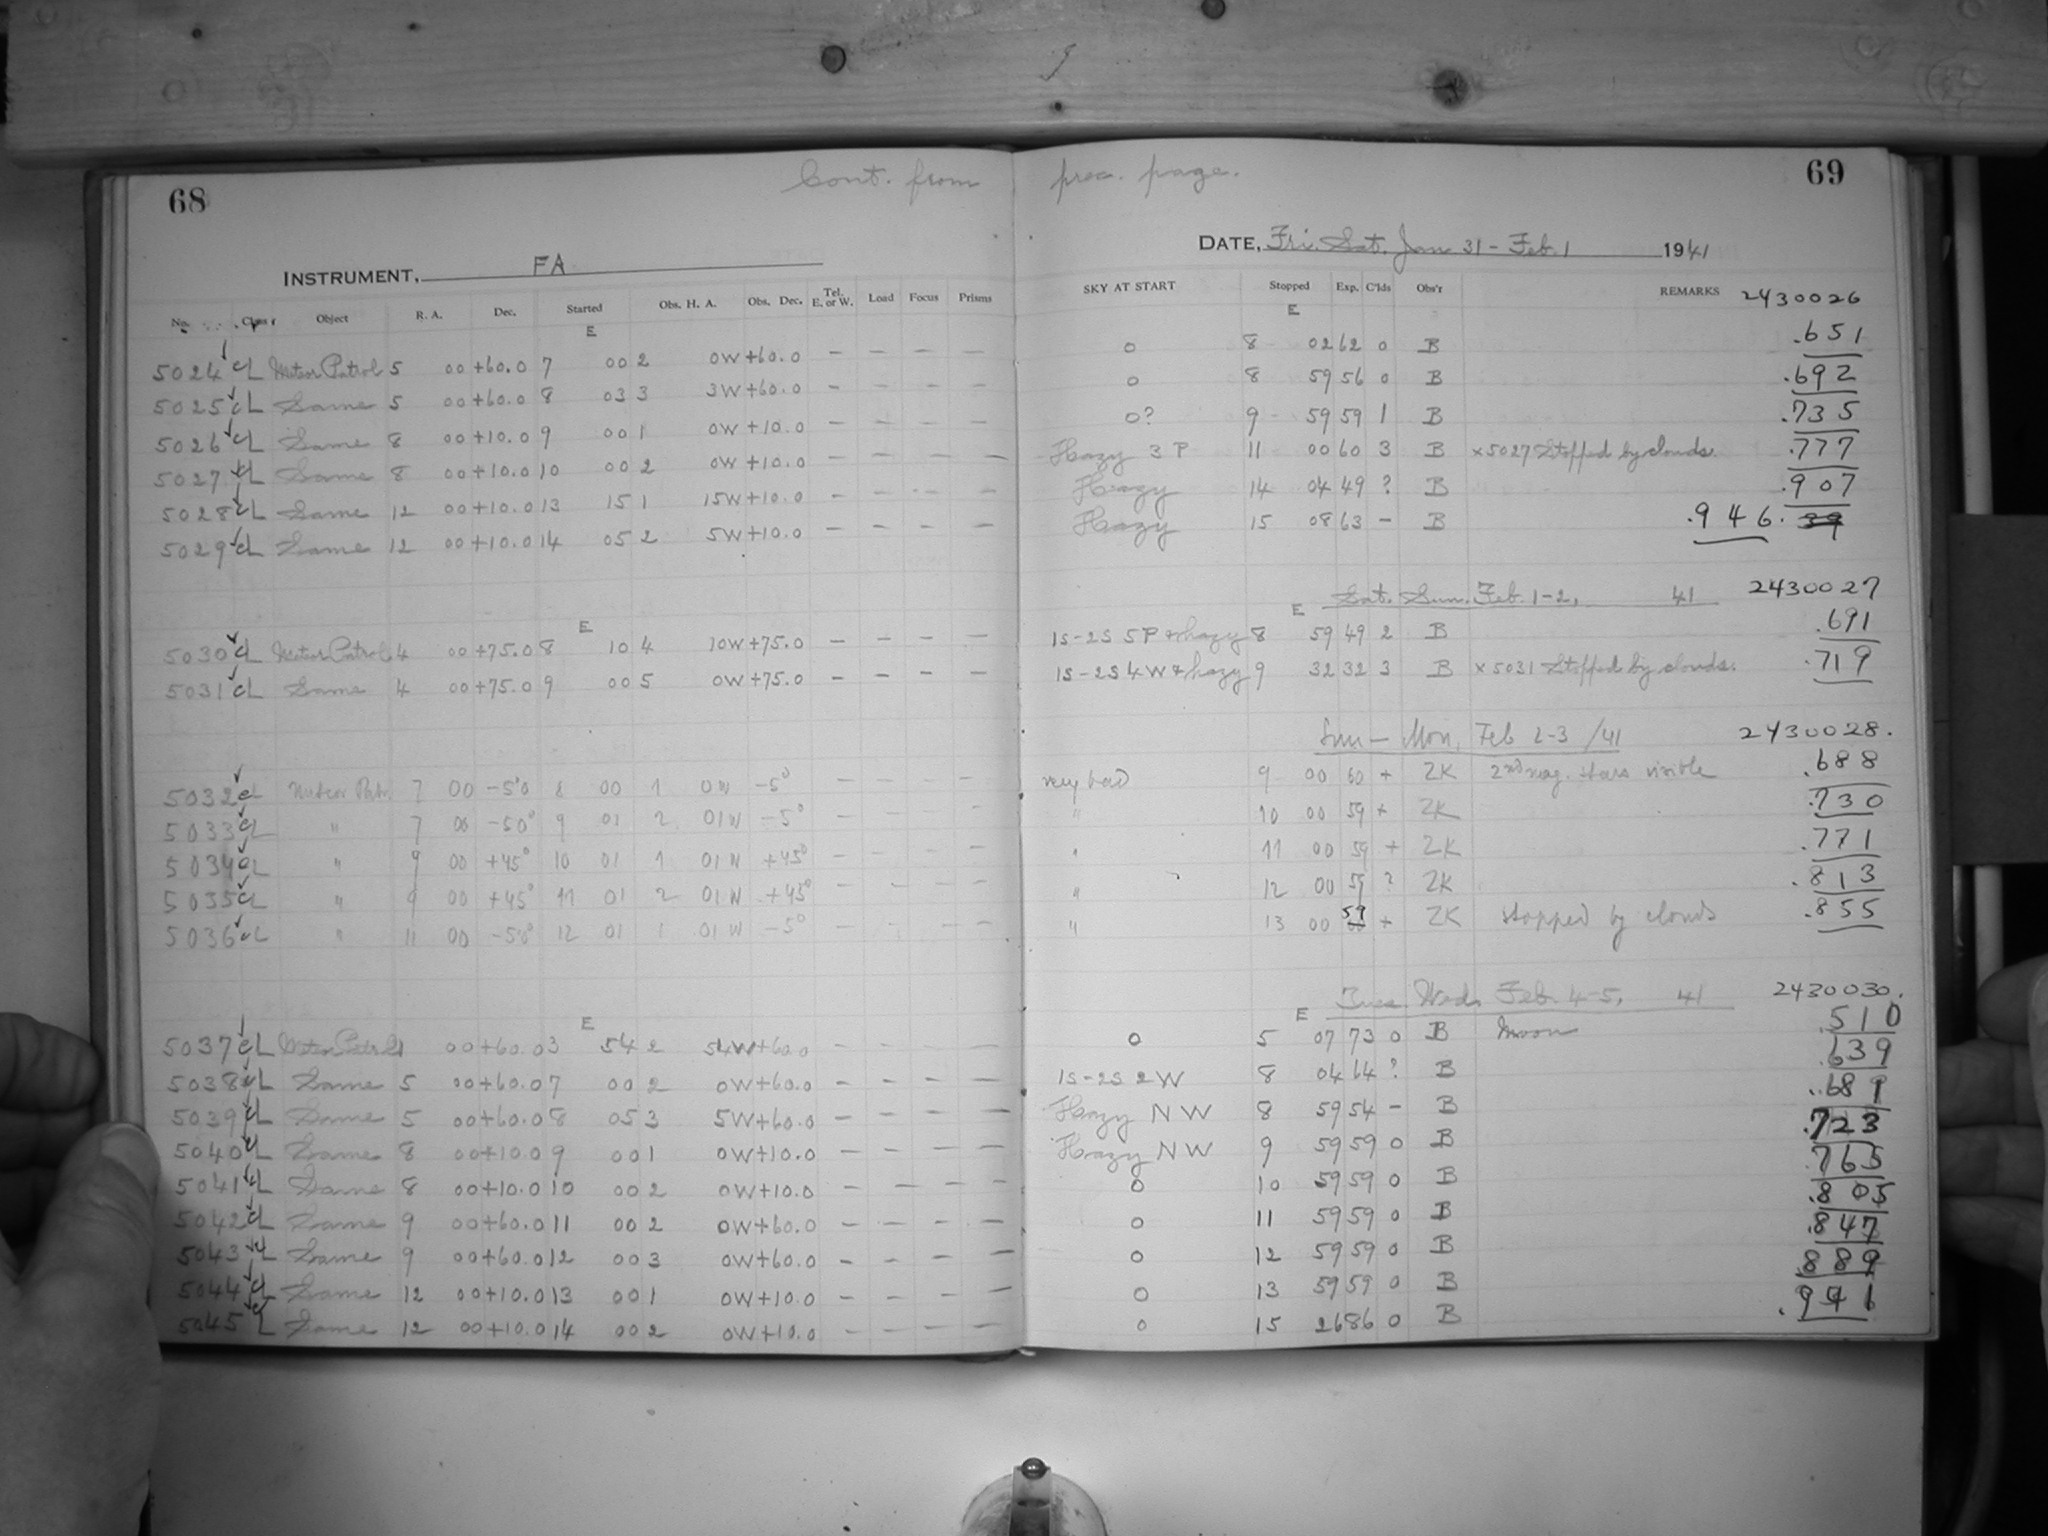 68
Cont. from
INSTRUMENT, FA
No. Class Object R. A. Dec. Started Obs. H. A. Obs. Dec. Tel. E. or W. Load Focus Prisms
E
5024 cL Meteor Patrol 5 00 +60.0 7 00 2 0W +60.0 – – – –
5025 cL Same 5 00 +60.0 8 03 3 3W +60.0 – – – –
5026 cL Same 8 00 +10.0 9 00 1 0W +10.0 – – – –
5027 cL Same 8 00 +10.0 10 00 2 0W +10.0 – – – –
5028 cL Same 12 00 +10.0 13 15 1 15W +10.0 – – – –
5029 cL Same 12 00 +10.0 14 05 2 5W +10.0 – – – –
E
5030 cL Meteor Patrol 4 00 +75.0 8 10 4 10W +75.0 – – – –
5031 cL Same 4 00 +75.0 9 00 5 0W +75.0 – – – –
5032 cL Meteor Patr. 7 00 -5° 8 00 1 0W -5° – – – –
5033 cL " 7 00 -5° 9 01 2 01W -5° – – – –
5034 cL " 9 00 +45° 10 01 1 01W +45° – – – –
5035 cL " 9 00 +45° 11 01 2 01W +45° – – – –
5036 cL " 11 00 -5° 12 01 1 01W -5° – – – –
E
5037 cL Meteor Patrol 1 00 +60.0 3 54 2 54W +60.0 – – – –
5038 cL Same 5 00 +60.0 7 00 2 0W +60.0 – – – –
5039 cL Same 5 00 +60.0 8 05 3 5W +60.0 – – – –
5040 cL Same 8 00 +10.0 9 00 1 0W +10.0 – – – –
5041 cL Same 8 00 +10.0 10 00 2 0W +10.0 – – – –
5042 cL Same 9 00 +60.0 11 00 2 0W +60.0 – – – –
5043 cL Same 9 00 +60.0 12 00 3 0W +60.0 – – – –
5044 cL Same 12 00 +10.0 13 00 1 0W +10.0 – – – –
5045 cL Same 12 00 +10.0 14 00 2 0W +10.0 – – – –
prec. page.
69
DATE, Fri. Sat. Jan 31 - Feb. 1 1941
SKY AT START Stopped Exp. C'lds Obs'r REMARKS 2430026
E
0 8 02 62 0 B .651
0 8 59 56 0 B .692
0? 9 59 59 1 B .735
Hazy 3 P 11 00 60 3 B x 5027 Stopped by clouds. .777
Hazy 14 04 49 ? B .907
Hazy 15 08 63 – B .946. 39
E Sat. Sun. Feb. 1-2, 41 2430027
1S-2S 5P + hazy 8 59 49 2 B .691
1S-2S 4W + hazy 9 32 32 3 B x 5031 Stopped by clouds. .719
Sun – Mon, Feb 2-3 /41 2430028.
very bad 9 00 60 + ZK 2nd mag. stars visible .688
" 10 00 59 + ZK .730
" 11 00 59 + ZK .771
" 12 00 59 ? ZK .813
" 13 00 59 + ZK stopped by clouds .855
E Tues. Wed. Feb. 4-5, 41 2430030.
0 5 07 73 0 B Moon .510
1S-2S 2W 8 04 64 ? B .639
Hazy NW 8 59 54 – B .681
Hazy NW 9 59 59 0 B .723
0 10 59 59 0 B .765
0 11 59 59 0 B .805
0 12 59 59 0 B .847
0 13 59 59 0 B .889
0 15 26 86 0 B .941